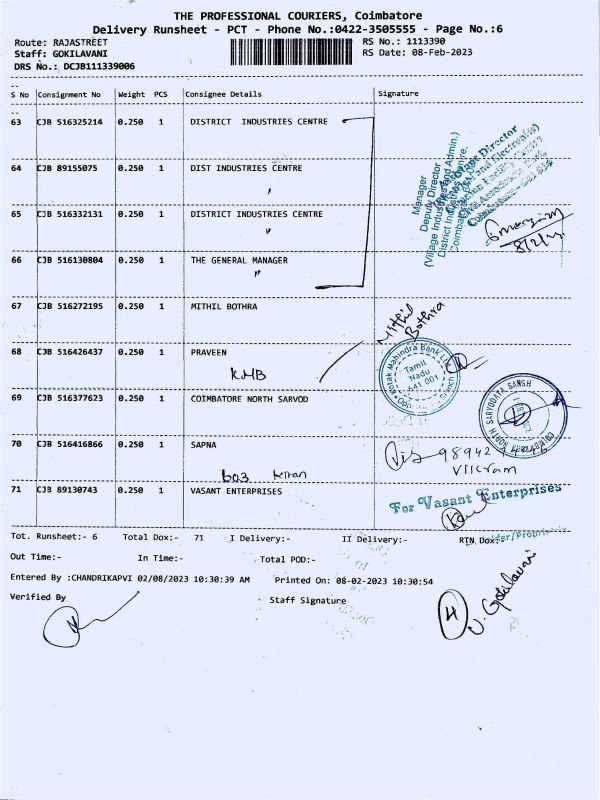 THE PROFESSIONAL COURIERS, Coimbatore
Delivery Runsheet - PCT - Phone No.:0422-3505555 - Page No.:6
Route: RAJASTREET
RS No.: 1113390
Staff: GOKILAVANI
RS Date: 08-Feb-2023
DRS No.: DCJB111339006
S No Consignment No Weight PCS Consignee Details Signature
63 CJB 516325214 0.250 1 DISTRICT INDUSTRIES CENTRE
64 CJB 89155075 0.250 1 DIST INDUSTRIES CENTRE
65 CJB 516332131 0.250 1 DISTRICT INDUSTRIES CENTRE
66 CJB 516130804 0.250 1 THE GENERAL MANAGER
Manager
Deputy Director
(Village Industries and Admin.)
District Industries Centre,
8/2/
67 CJB 516272195 0.250 1 MITHIL BOTHRA
Mithil
Bothra
68 CJB 516426437 0.250 1 PRAVEEN
KMB
Kotak Mahindra Bank Ltd
Tamil
Nadu
641 001
69 CJB 516377623 0.250 1 COIMBATORE NORTH SARVOD
NORTH SARVODAYA SANGH
70 CJB 516416866 0.250 1 SAPNA
Kiran
98942
Vikram
71 CJB 89130743 0.250 1 VASANT ENTERPRISES
For Vasant Enterprises
Tot. Runsheet:- 6 Total Dox:- 71 I Delivery:- II Delivery:- RTN Dox:-
Out Time:- In Time:- Total POD:-
Entered By :CHANDRIKAPVI 02/08/2023 10:30:39 AM Printed On: 08-02-2023 10:30:54
Verified By Staff Signature
4
V. Gokilavani